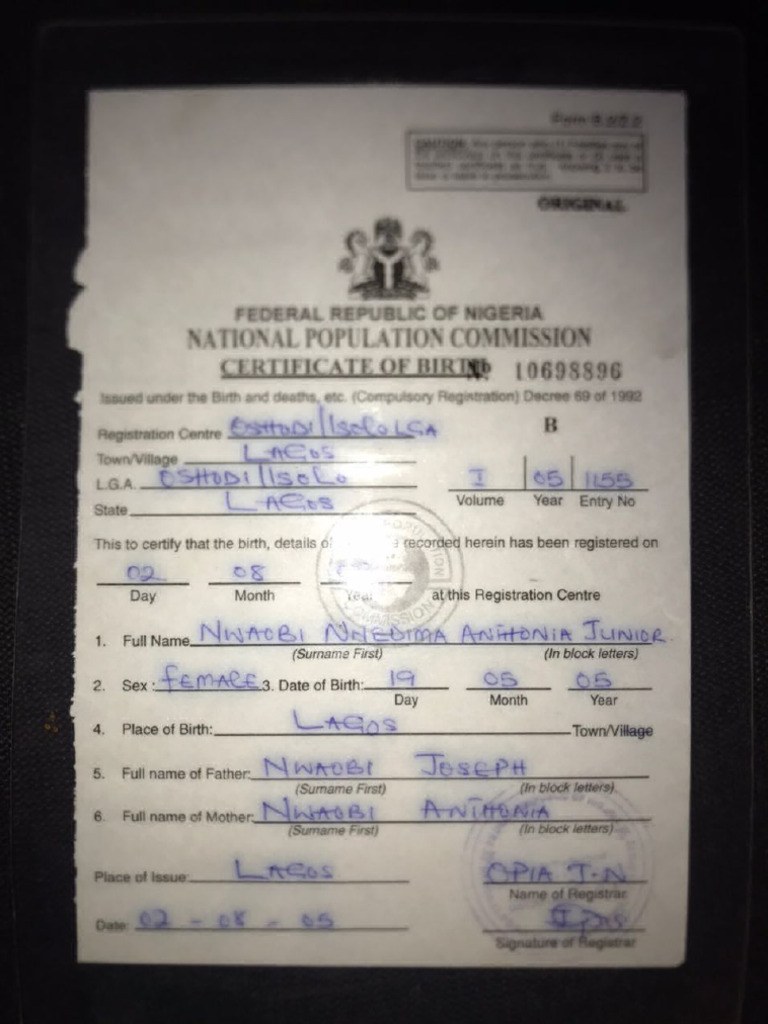 CAUTION:
ORIGINAL
FEDERAL REPUBLIC OF NIGERIA
NATIONAL POPULATION COMMISSION
CERTIFICATE OF BIRTH No 10698896
Issued under the Birth and deaths, etc. (Compulsory Registration) Decree 69 of 1992
Registration Centre OSHODI/ISOLO LGA B
Town/Village LAGOS
L.G.A. OSHODI/ISOLO I 05 1155
State LAGOS Volume Year Entry No
This to certify that the birth, details of recorded herein has been registered on
02 08
Day Month Year at this Registration Centre
1. Full Name NWAOBI ANTHONIA JUNIOR
(Surname First) (In block letters)
2. Sex: FEMALE 3. Date of Birth: 19 05 05
Day Month Year
4. Place of Birth: LAGOS Town/Village
5. Full name of Father: NWAOBI JOSEPH
(Surname First) (In block letters)
6. Full name of Mother: NWAOBI ANTHONIA
(Surname First) (In block letters)
Place of Issue: LAGOS OPIA J.N
Name of Registrar
Date: 02 - 08 - 05
Signature of Registrar